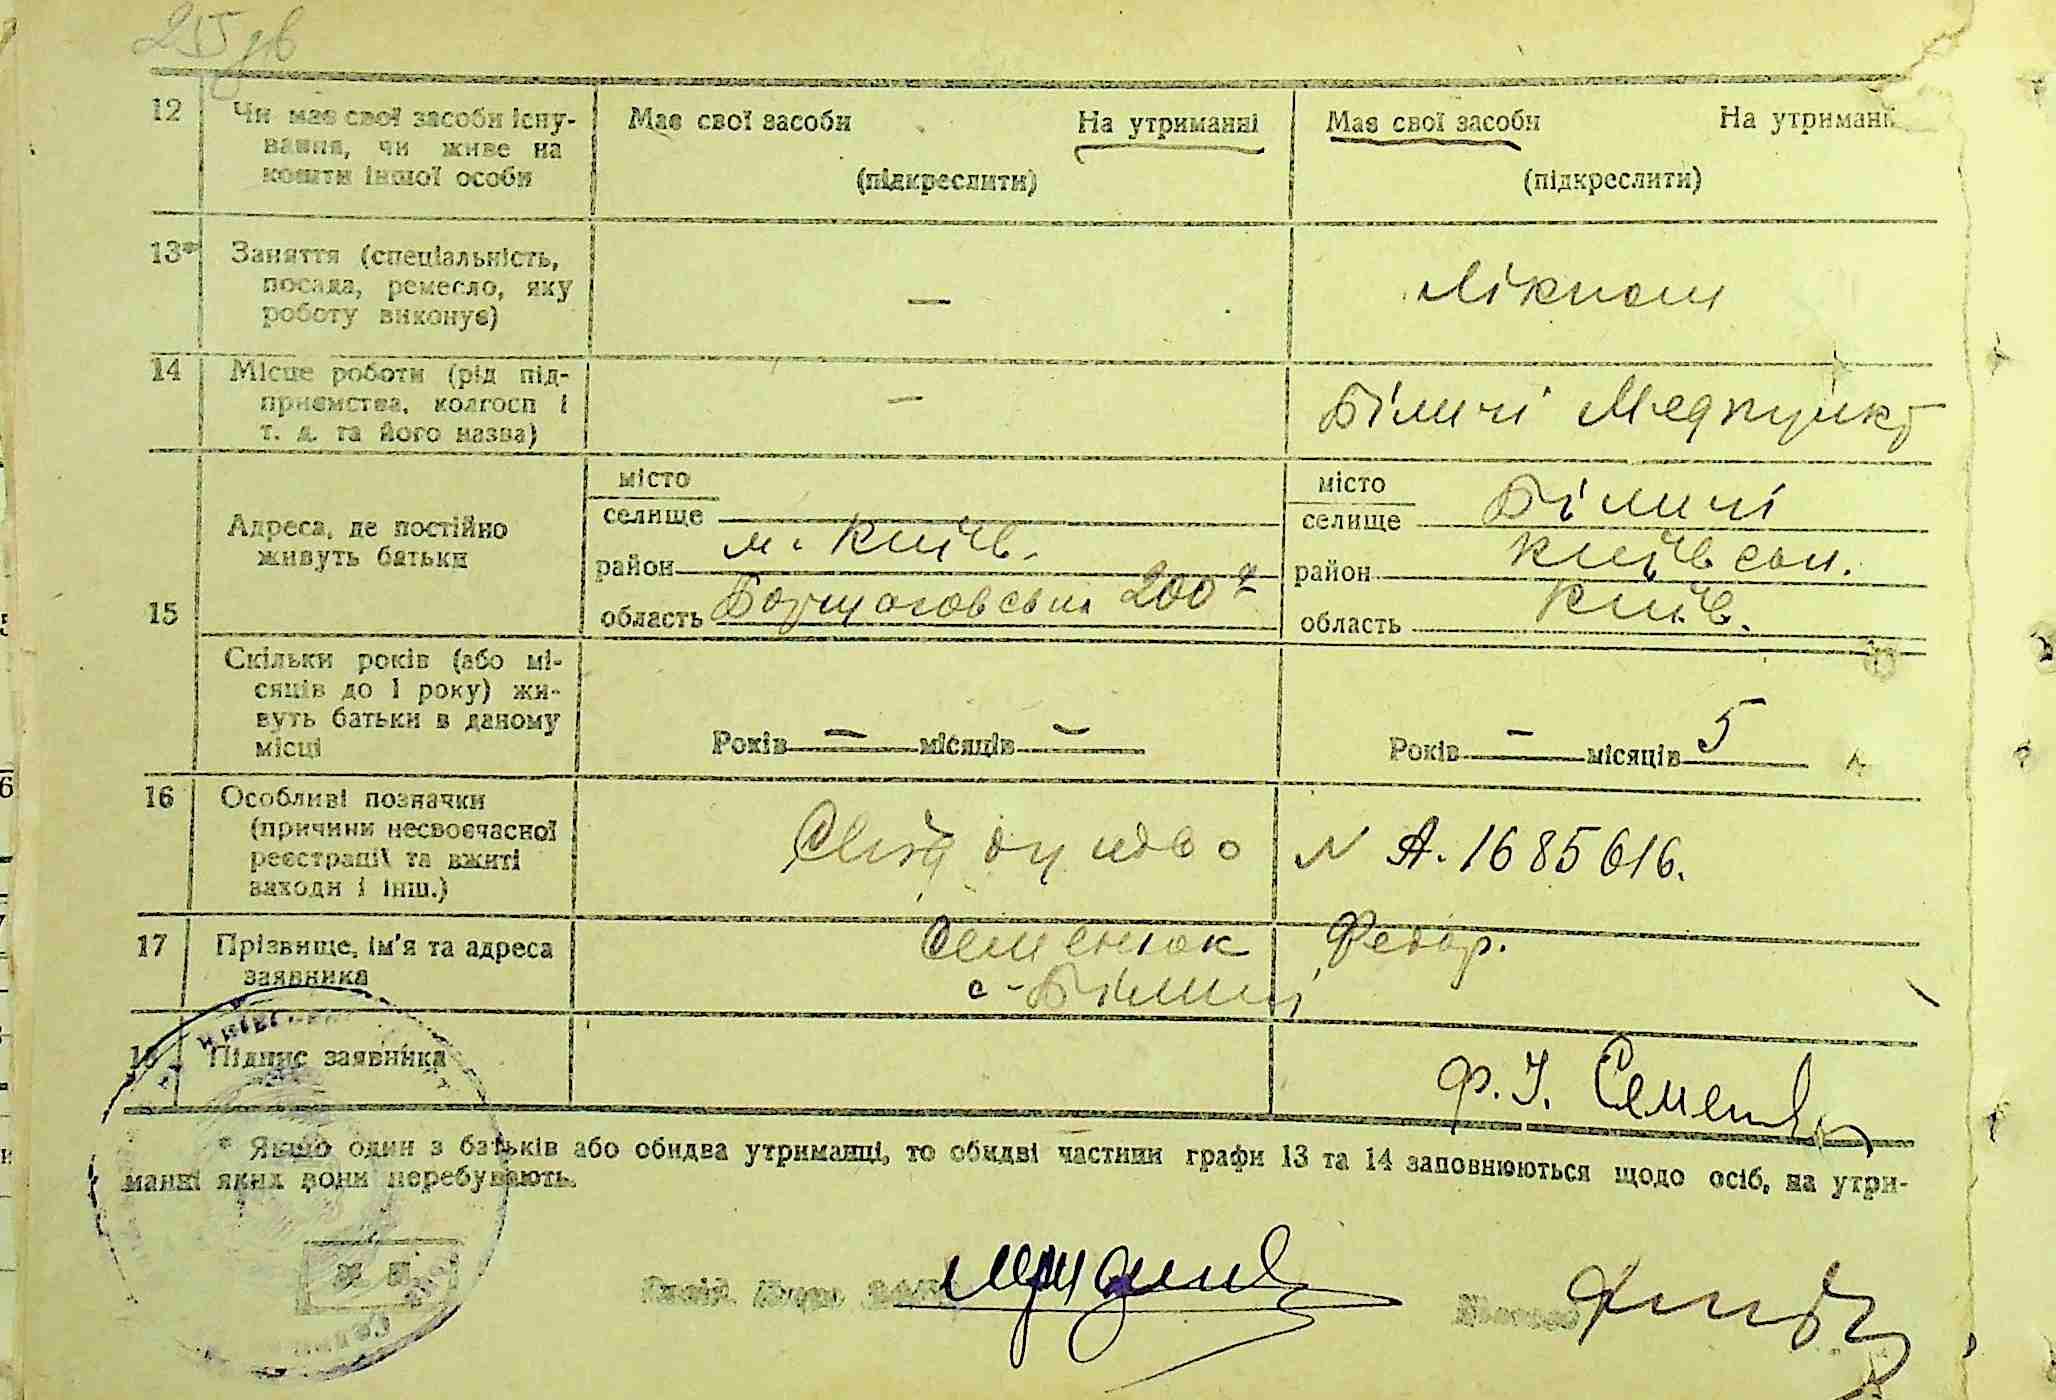 12 Чи має свої засоби існу-
вання, чи живе на
кошти іншої особи
Має свої засоби На утриманні
(підкреслити)
Має свої засоби На утриманн
(підкреслити)
13* Заняття (спеціальність,
посада, ремесло, яку
роботу виконує)
—
Лікпом
14 Місце роботи (рід під-
приємства, колгосп і
т. д. та його назва)
—
Біличі Медпункт
15
Адреса, де постійно
живуть батьки
місто
селище
район м. Київ.
область Борщаговська 200
місто
селище Біличі
район Київсом.
область Київ.
Скільки років (або мі-
сяців до 1 року) жи-
вуть батьки в даному
місці
Років — місяців —
Років — місяців 5
16 Особливі позначки
(причини несвоєчасної
реєстрації та вжиті
заходи і інш.)
N А. 1685616.
17 Прізвище, ім'я та адреса
заявника
Семенюк Федор.
с. Біличі
18 Підпис заявника
Ф. І. Семенюк
* Якщо один з батьків або обидва утриманці, то обидві частини графи 13 та 14 заповнюються щодо осіб, на утри-
манні яких вони перебувають.